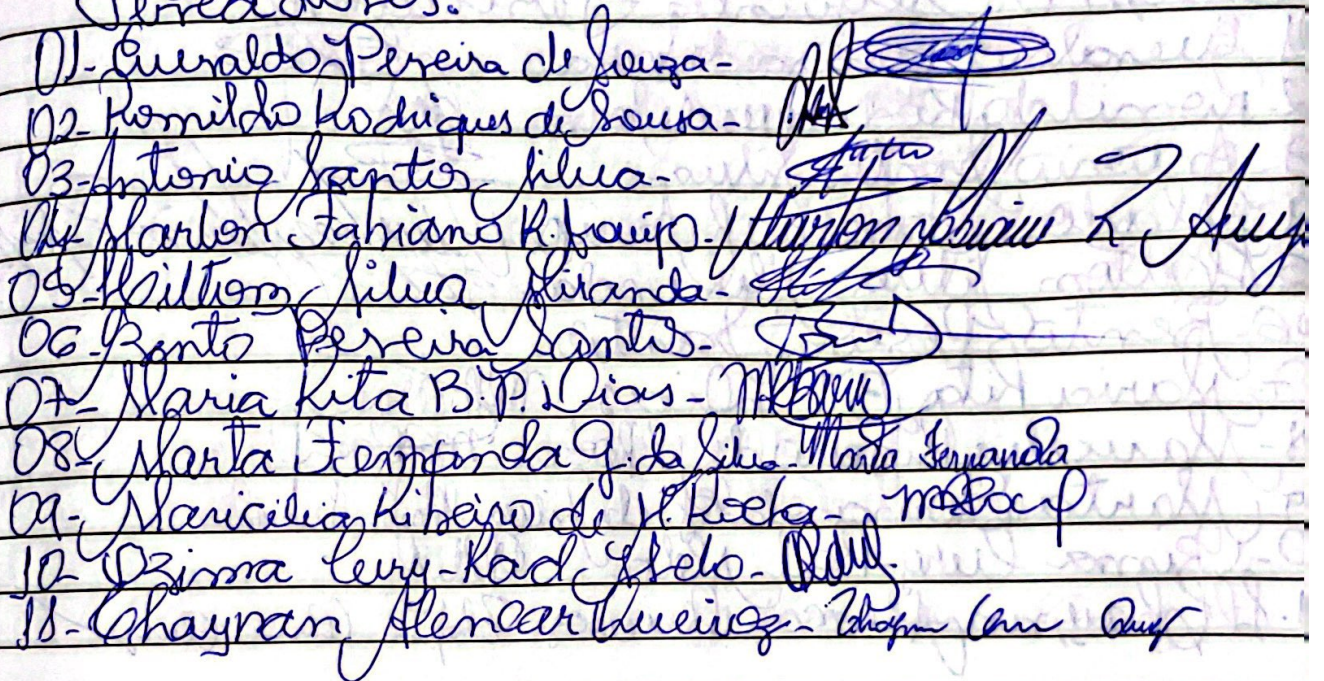 Vereadores.
01- Eurivaldo Pereira de Souza-
02- Romildo Rodrigues de Sousa-
03- Antonio Santos Silva-
04- Marlon Fabiano R. Araújo- Marlon Fabiano R Arauj
05- Hilton Silva Miranda-
06- Bento Pereira Santos-
07- Maria Rita B. P. Dias-
08- Marta Fernanda G. da Silva- Marta Fernanda
09- Maricilia Ribeiro de M. Rocha- MRRocha
10- Ozima Cury-Rad Melo-
11- Thaynan Alencar Queiroz-